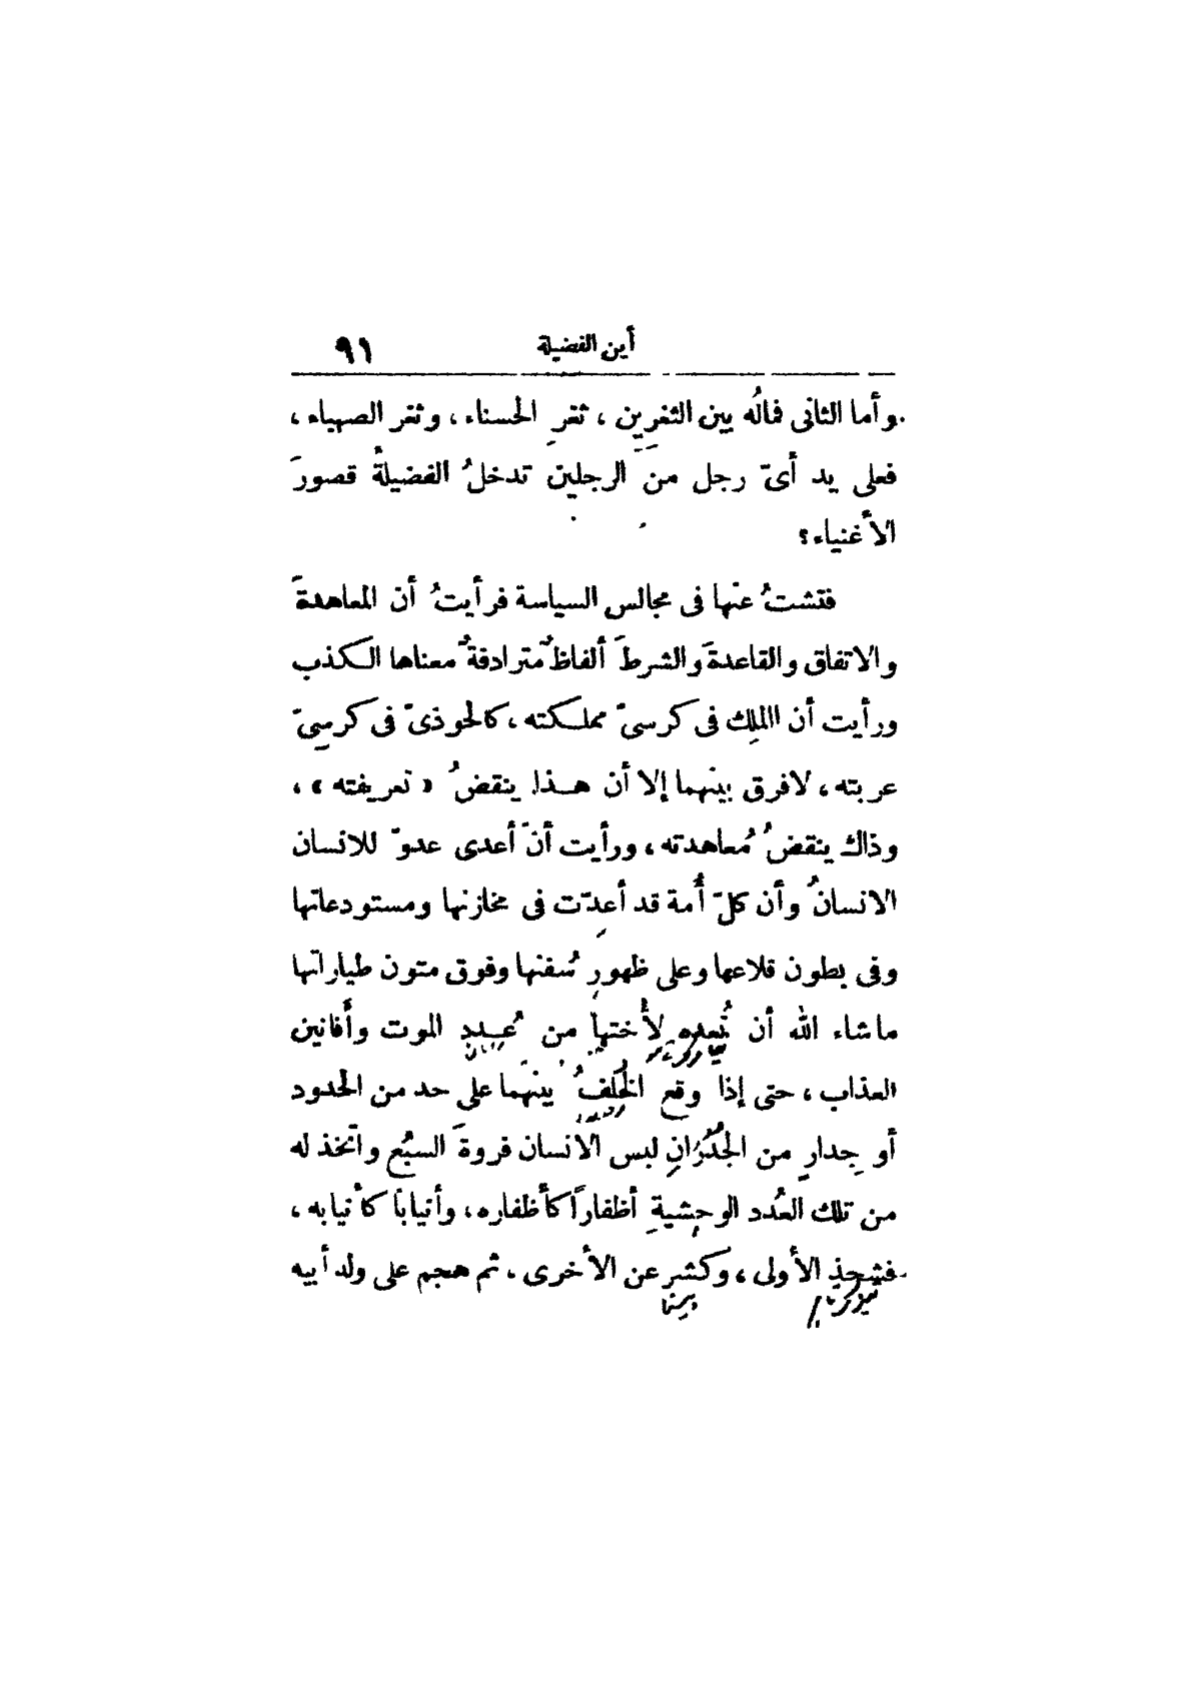 أين الفضيلة ٩١
وأما الثانى فمالُه بين الثغرين ، ثغرِ الحسناء ، وثغر الصهباء ،
فعلى يد أىّ رجل من الرجلين تدخلُ الفضيلةُ قصورَ
الأغنياء؟
فتشتُ عنها فى مجالس السياسة فرأيتُ أن المعاهدةَ
والاتفاق والقاعدةَ والشرطَ ألفاظٌ مترادفةٌ معناها الكذب
ورأيت أن الملِك فى كرسىّ مملكته ، كالحوذىّ فى كرسِىّ
عربته ، لافرق بينهما إلا أن هذا ينقضُ « تعريفته » ،
وذاك ينقضُ مُعاهدته ، ورأيت أنّ أعدى عدوّ للانسان
الانسانُ وأن كلّ أُمة قد أعدّت فى مخازنها ومستودعاتها
وفى بطون قلاعها وعلى ظهورِ سُفنها وفوق متون طياراتها
ماشاء الله أن تُعِده لِأُختها من عُددِ الموت وأفانين
العذاب ، حتى إذا وقع الخُلفُ بينهما على حد من الحدود
أو جِدارٍ من الجُدْرَانِ لبس الانسان فروةَ السبُع واتخذ له
من تلك العُدد الوحشيةِ أظفاراً كأظفاره ، وأنياباً كأنيابه ،
فشحذ الأولى ، وكشر عن الأخرى ، ثم هجم على ولد أبيه